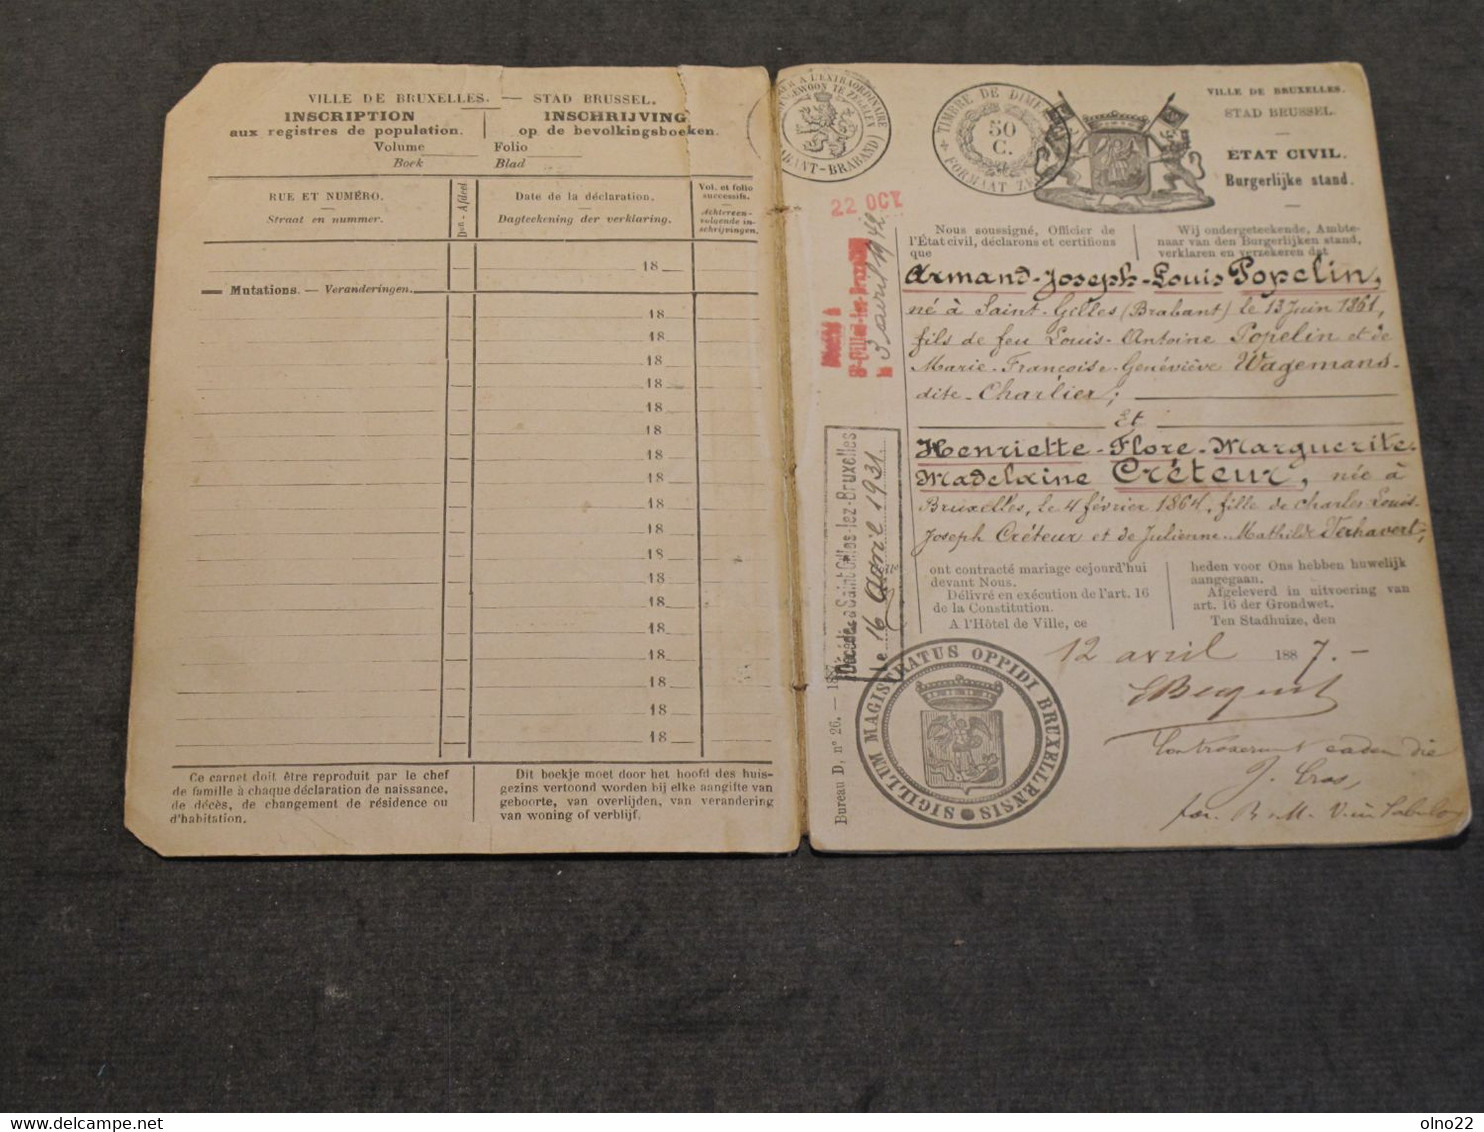 VILLE DE BRUXELLES. — STAD BRUSSEL.
INSCRIPTION
aux registres de population.
INSCHRIJVING
op de bevolkingsboeken.
Volume Folio
Boek Blad
RUE ET NUMÉRO.
Straat en nummer.
Don - Afdeel.
Date de la déclaration.
Dagteekening der verklaring.
Vol. et folio
successifs.
Achtereen-
volgende in-
schrijvingen.
18
Mutations. — Veranderingen.
18
18
18
18
18
18
18
18
18
18
18
18
18
18
18
18
18
18
Ce carnet doit être reproduit par le chef
de famille à chaque déclaration de naissance,
de décès, de changement de résidence ou
d'habitation.
Dit boekje moet door het hoofd des huis-
gezins vertoond worden bij elke aangifte van
geboorte, van overlijden, van verandering
van woning of verblijf.
TIMBRE DE DIME
50
C.
22 OCT
3 avril 1942
VILLE DE BRUXELLES.
STAD BRUSSEL.
ETAT CIVIL.
Burgerlijke stand.
Nous soussigné, Officier de
l'État civil, déclarons et certifions
que
Wij ondergeteekende, Ambte-
naar van den Burgerlijken stand,
verklaren en verzekeren dat
Armand-Joseph-Louis Popelin,
né à Saint-Gilles (Brabant) le 13 Juin 1861,
fils de feu Louis-Antoine Popelin et de
Marie-Françoise-Geneviève Wagemans
dite Charlier;
Et
Henriette-Flore-Marguerite-
Madelaine Créteur, née à
Bruxelles, le 4 février 1864, fille de Charles-Louis-
Joseph Créteur et de Julienne-Mathilde Verhavert,
ont contracté mariage cejourd'hui
devant Nous.
Délivré en exécution de l'art. 16
de la Constitution.
A l'Hôtel de Ville, ce
heden voor Ons hebben huwelijk
aangegaan.
Afgeleverd in uitvoering van
art. 16 der Grondwet.
Ten Stadhuize, den
12 avril 1887.-
Décédée à Saint Gilles-lez-Bruxelles
le 16 avril 1931.
SIGILLUM MAGISTRATUS OPPIDI BRUXELLENSIS
Bureau D, n° 26. — 1887
delcampe.net
olno22